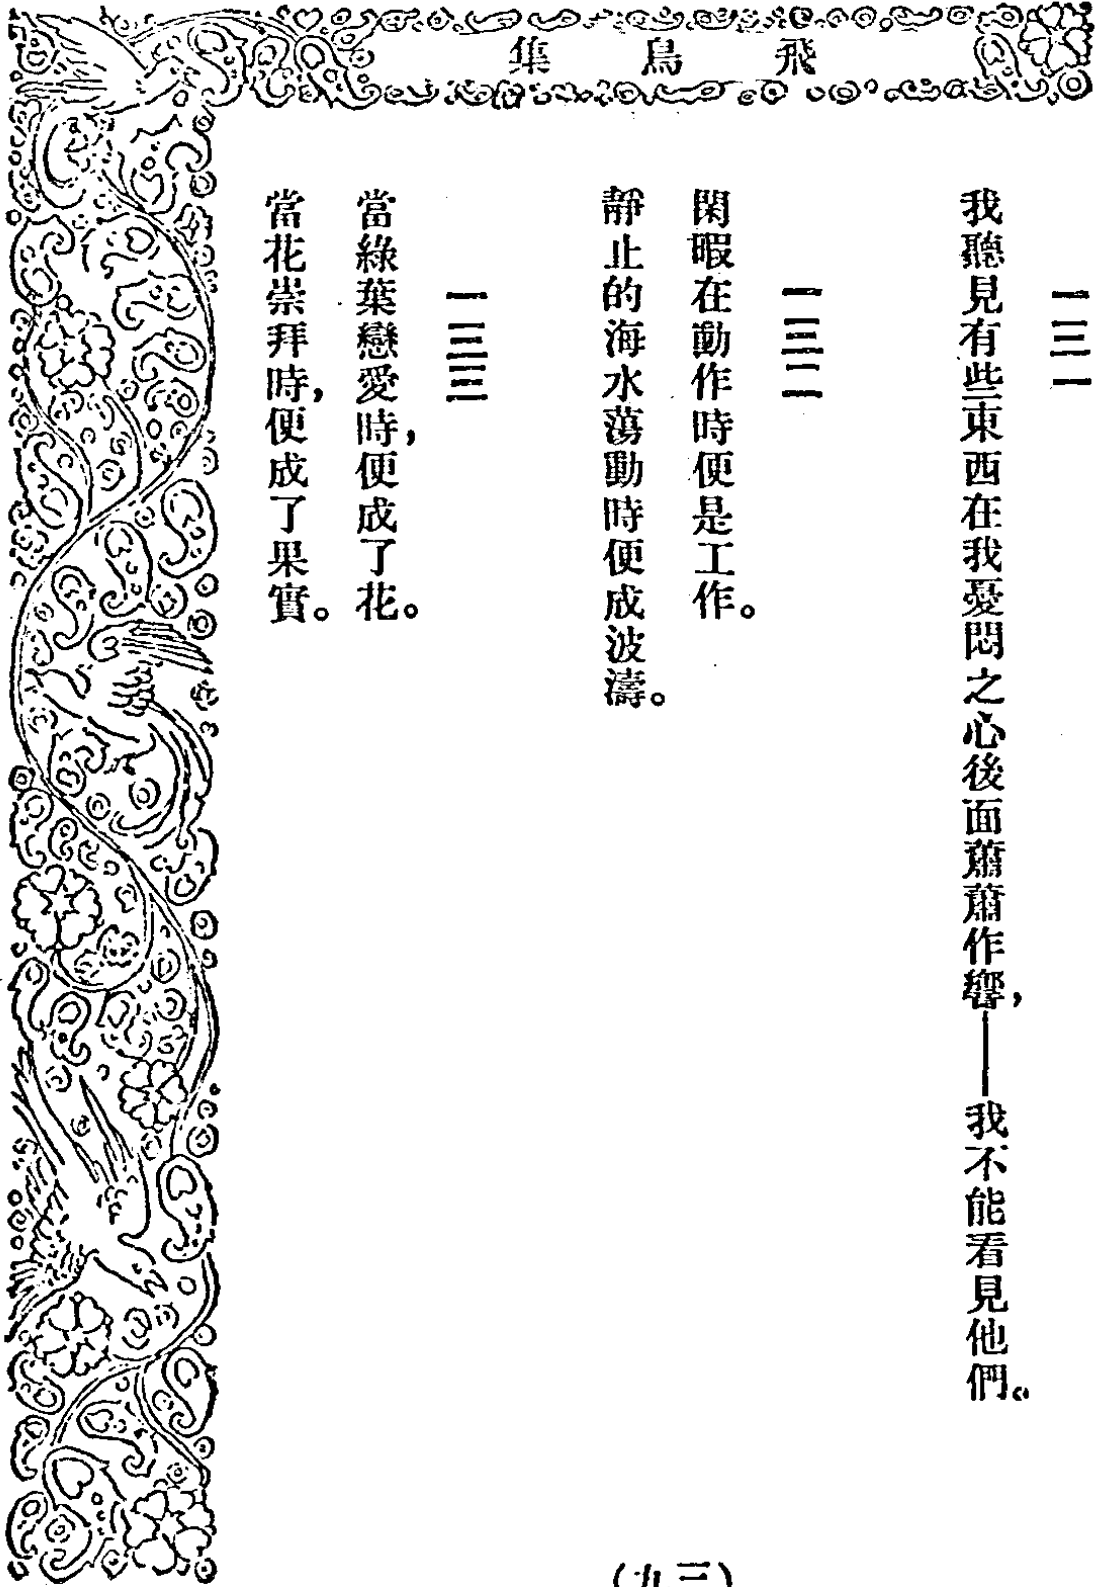 飛鳥集
一三一
我聽見有些東西在我憂悶之心後面蕭蕭作響,——我不能看見他們。
一三二
閑暇在動作時便是工作。
靜止的海水蕩動時便成波濤。
一三三
當綠葉戀愛時,便成了花。
當花崇拜時,便成了果實。
(三九)